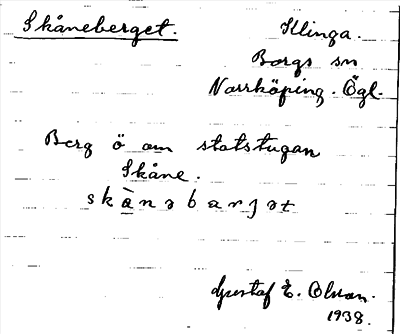 Skåneberget.
Klinga.
Borgs sn
Norrköping. Ögl.
Berg ö om statstugan
Skåne.
skànəbarjət
Gustaf E. Olsson.
1938.